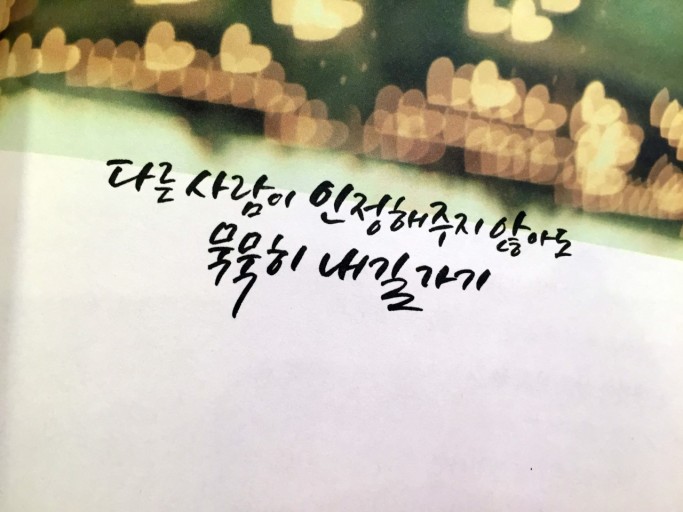 다른 사람이 인정해주지 않아도
묵묵히 내길 가기